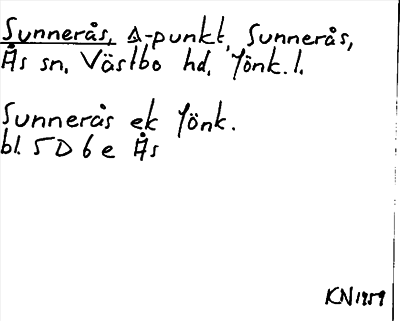 Sunnerås, △-punkt, Sunnerås,
Ås sn, Västbo hd, Jönk. l.
Sunnerås ek Jönk.
bl. 5D 6e Ås
KN 1959